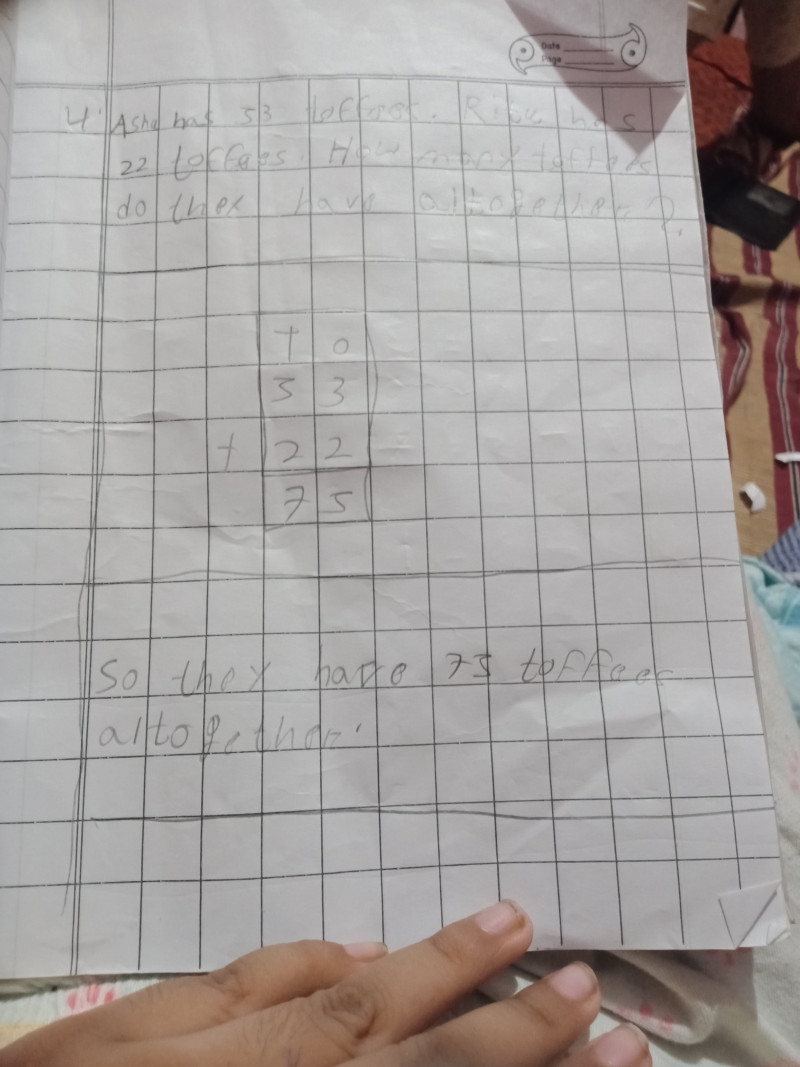 Date
Page
4. Asha has 53 toffees. Ritu has
22 toffees. How many toffees
do they have altogether?
T O
5 3
+ 2 2
7 5
So they have 75 toffees
altogether.